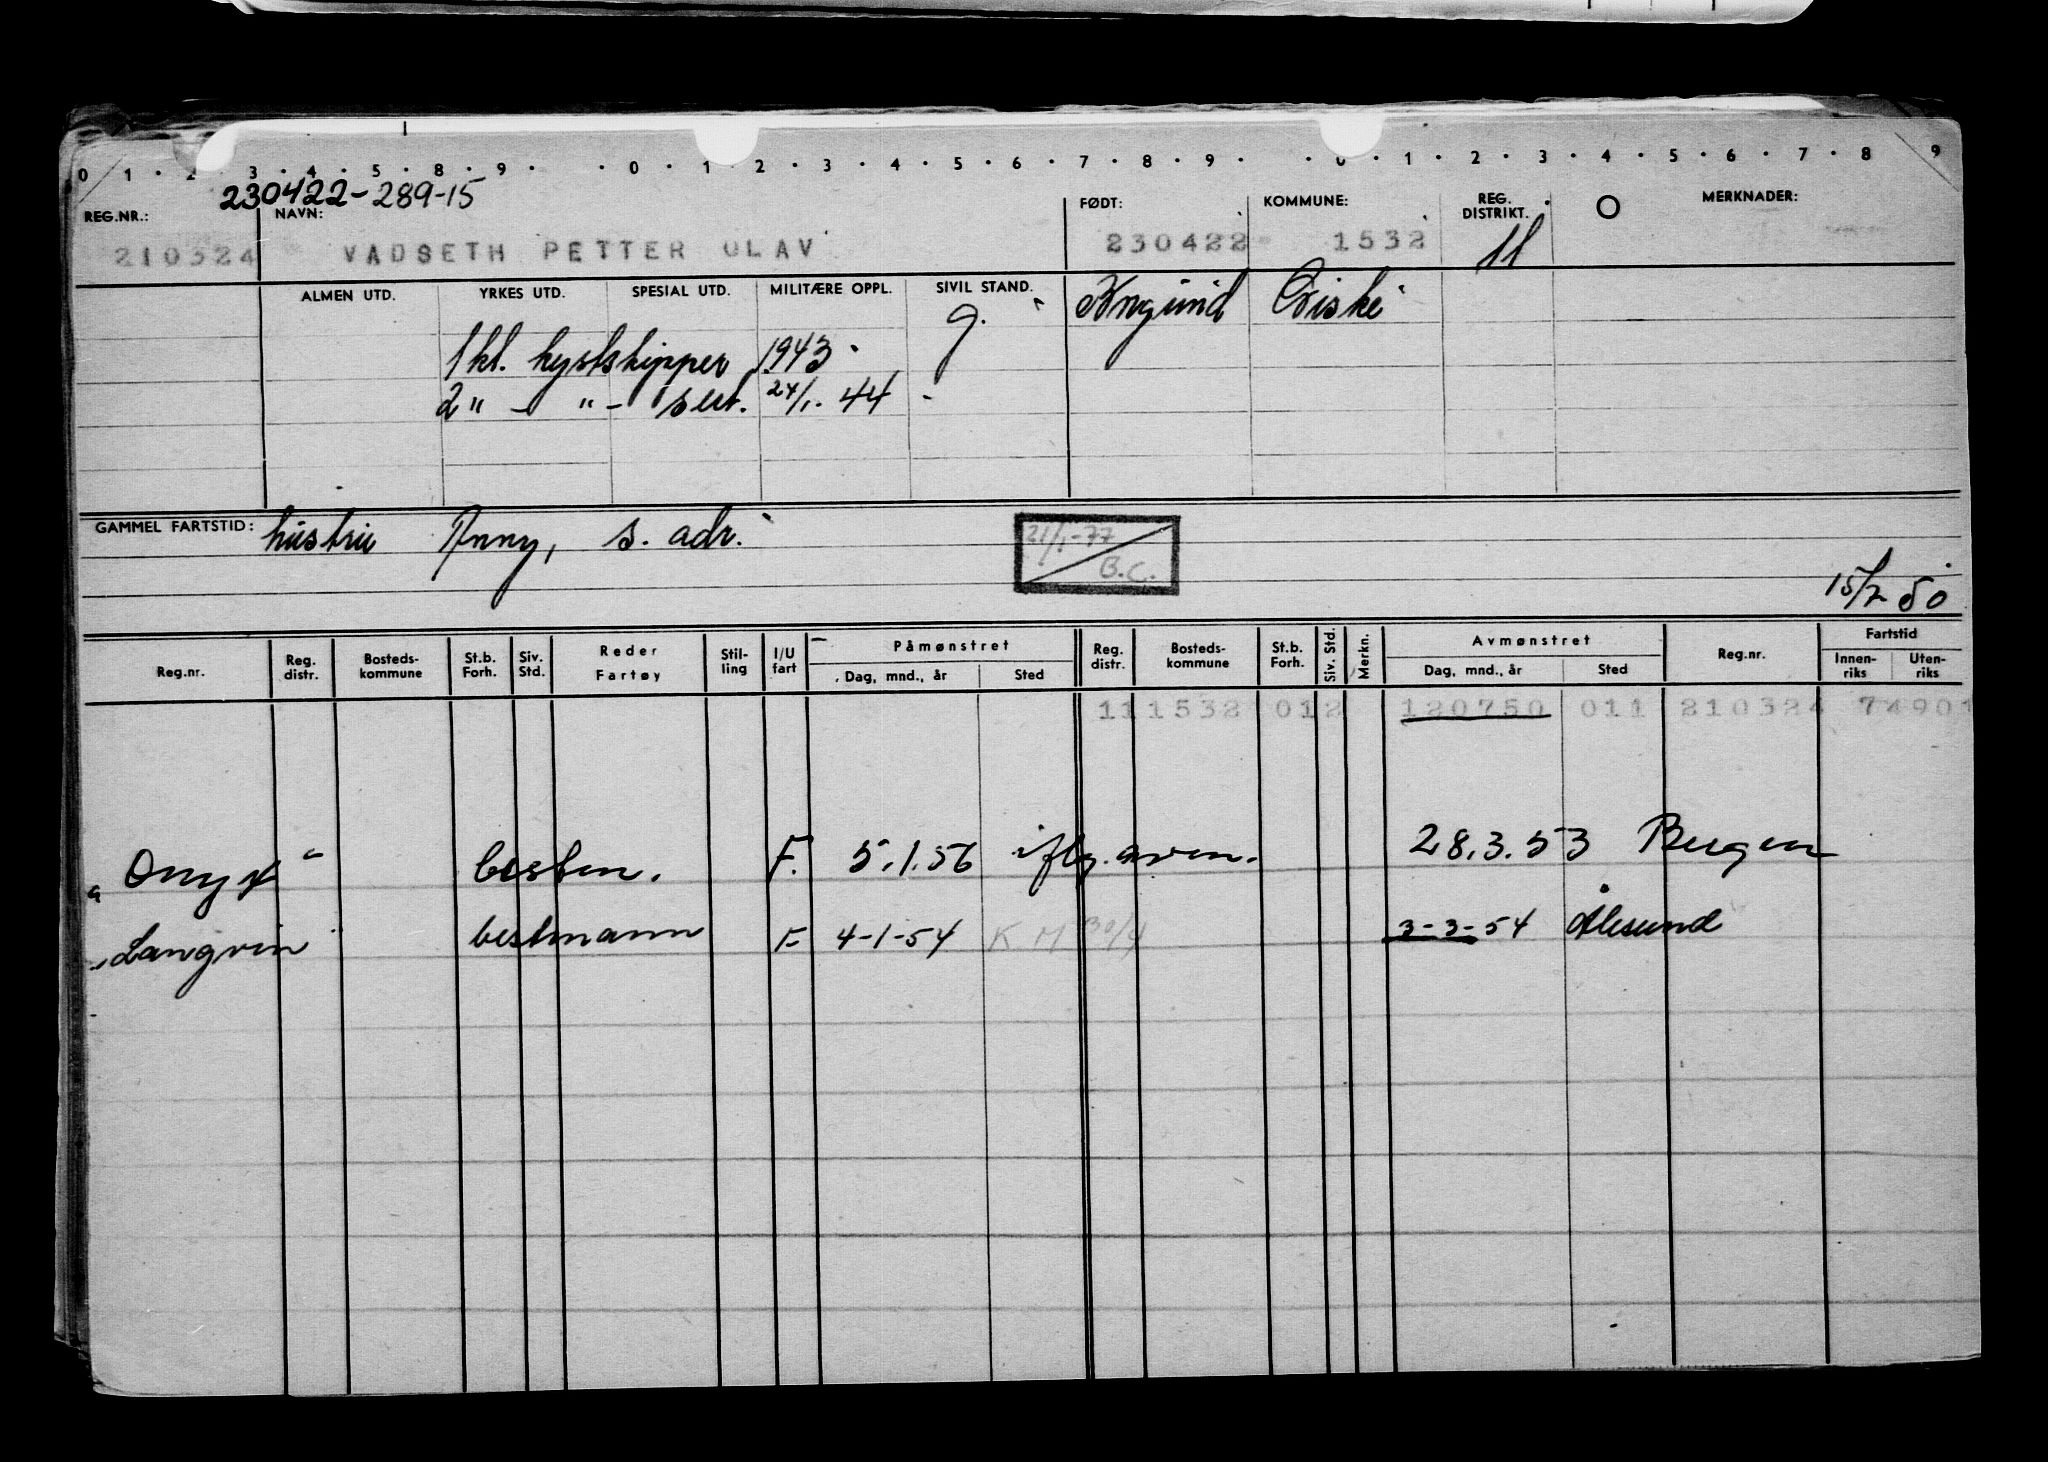 0 1 · 2 · 3 · 4 · 5 · 8 · 9 · · 0 · 1 · 2 · 3 · 4 · 5 · 6 · 7 · 8 · 9 · · 0 · 1 · 2 · 3 · 4 · 5 · 6 · 7 · 8 9
230422-289-15
REG.NR.: NAVN: FØDT: KOMMUNE: REG. DISTRIKT. O MERKNADER:
210324 VADSETH PETTER OLAV 230422 1532 11
ALMEN UTD. YRKES UTD. SPESIAL UTD. MILITÆRE OPPL. SIVIL STAND.
g. Giske
1 kl. kystskipper 1943.
2 " - " - sert. 24/1. 44 -
GAMMEL FARTSTID: hustru Anny, s. adr.
21/1-77
B.C.
15/2 50
Reg.nr. Reg. distr. Bosteds-kommune St.b. Forh. Siv. Std. Reder Fartøy Stil-ling I/U fart Påmønstret Dag, mnd., år Sted Reg. distr. Bosteds-kommune St.b. Forh. Siv. Std. Merkn. Avmønstret Dag, mnd., år Sted Reg.nr. Fartstid Innen-riks Uten-riks
11 1532 012 120750 011 210324 74901
"Onyx" bestm. F. 5.1.56 iflg. avm. 28.3.53 Bergen
"Langvin" bestmann F 4-1-54 K M 30/4 3-3-54 Ålesund